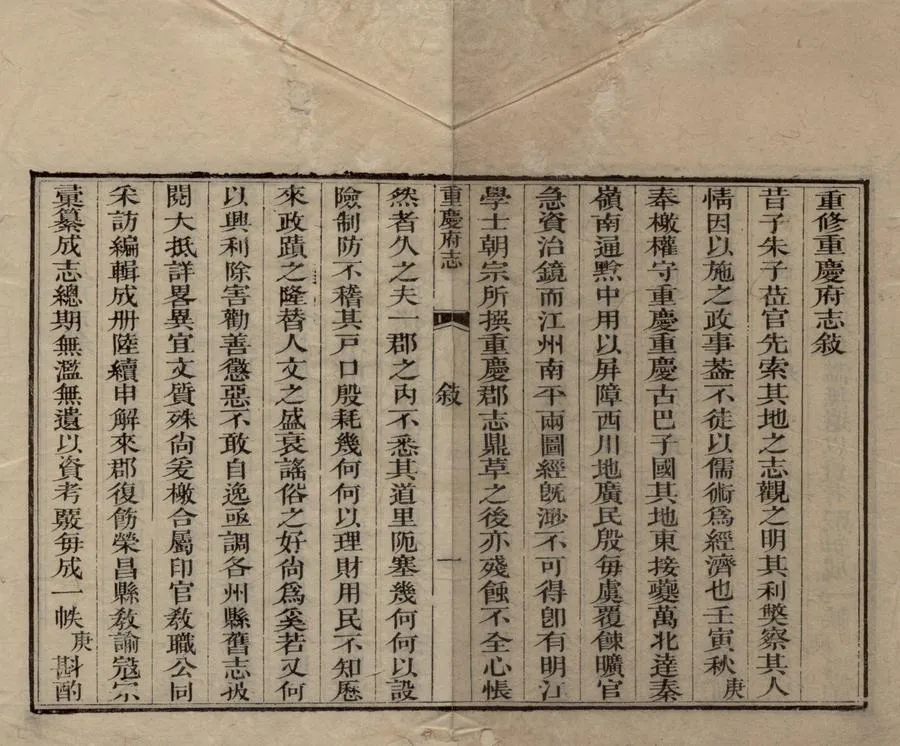 重修重慶府志敘
昔子朱子莅官先索其地之志觀之明其利獘察其人
情因以施之政事葢不徒以儒術為經濟也壬寅秋庚
奉檄權守重慶重慶古巴子國其地東接夔萬北逹秦
嶺南通黔中用以屏障西川地廣民殷每虞覆餗曠官
急資治鏡而江州南平兩圖經旣渺不可得卽有明江
學士朝宗所撰重慶郡志鼎革之後亦殘蝕不全心悵
重慶府志 敘 一
然者久之夫一郡之內不悉其道里阨塞幾何何以設
險制防不稽其戸口殷耗幾何何以理財用民不知歷
來政蹟之隆替人文之盛衰謠俗之好尙為奚若又何
以興利除害勸善懲惡不敢自逸亟調各州縣舊志披
閱大抵詳畧異宜文質殊尙爰檄合屬印官敎職公同
采訪編輯成册陸續申解來郡復飭榮昌縣敎諭寇宗
彚纂成志總期無濫無遺以資考覈每成一帙庚斟酌